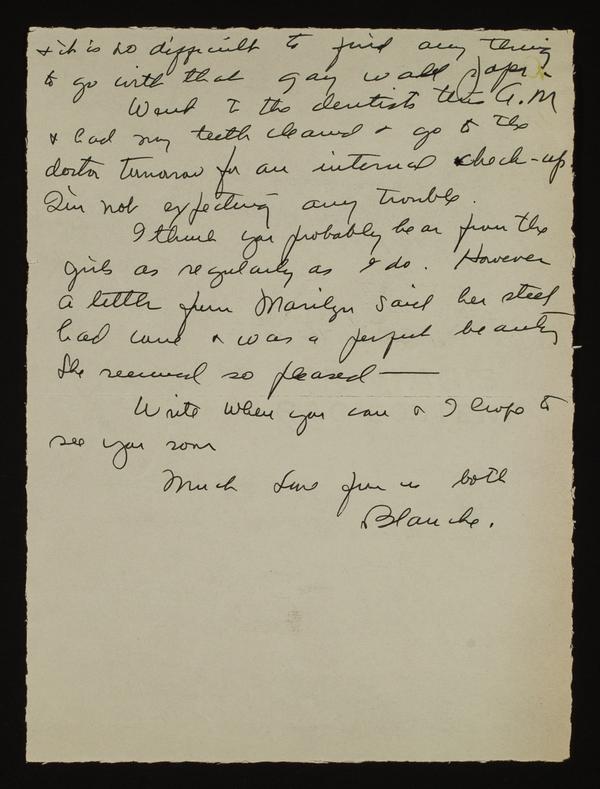 & it is so difficult to find any thing
to go with that gay wall paper.
Went to the dentists this A.M
& had my teeth cleaned & go to the
doctor tomorrow for an internal check-up.
I'm not expecting any trouble.
I think you probably hear from the
girls as regularly as I do. However
a letter from Marilyn said her steel
had come & was a perfect beauty
She seemed so pleased —
Write when you can & I hope to
see you soon
Much love from us both
Blanche.